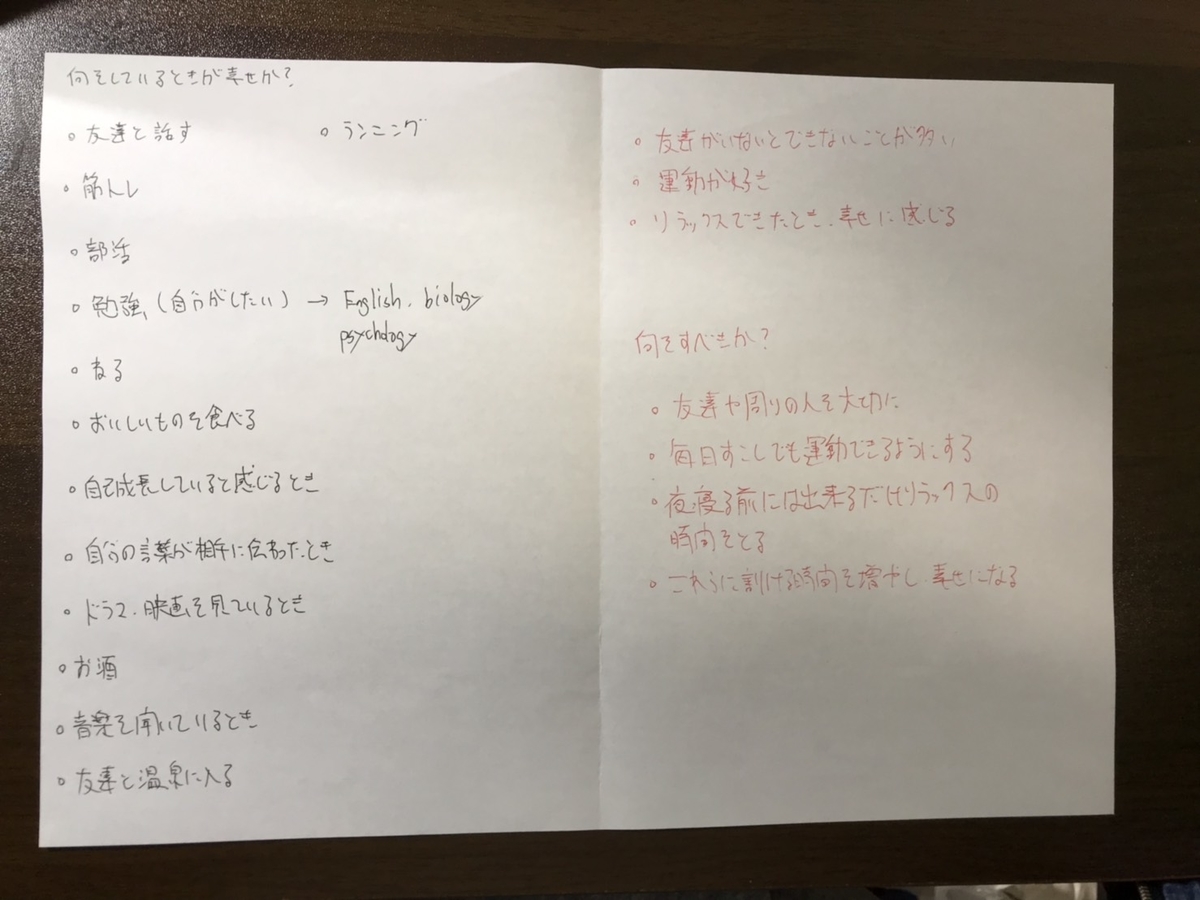 何をしているときが幸せか?
○ 友達と話す
○ ランニング
○ 筋トレ
○ 部活
○ 勉強(自分がしたい) → English. biology
psychology
○ ねる
○ おいしいものを食べる
○ 自己成長していると感じるとき
○ 自分の言葉が相手に伝わったとき
○ ドラマ.映画を見ているとき
○ お酒
○ 音楽を聞いているとき
○ 友達と温泉に入る
○ 友達がいないとできないことが多い
○ 運動が好き
○ リラックスできたとき.幸せに感じる
何をすべきか?
○ 友達や周りの人を大切に
○ 毎日すこしでも運動できるようにする
○ 夜寝る前には出来るだけリラックスの
時間をとる
○ これらに割ける時間を増やし.幸せになる